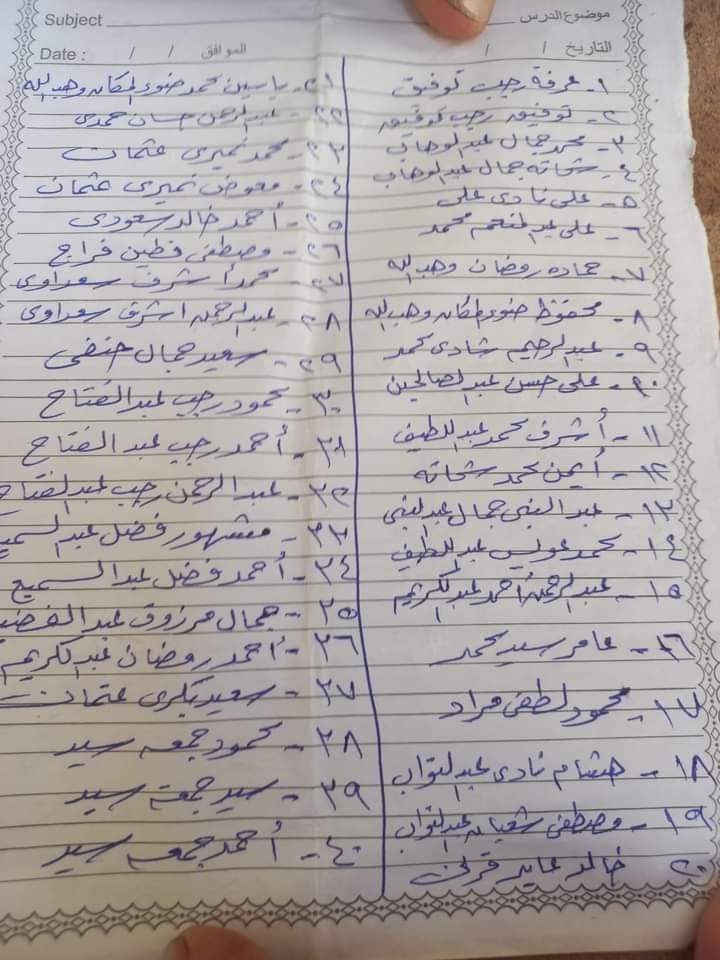 موضوع الدرس Subject
التاريخ / / الموافق / / Date :
١- عرفة رجب توفيق
٢- توفيق رجب توفيق
٣- محمد جمال عبد الوهاب
٤- شحاته جمال عبد الوهاب
٥- على نادى على
٦- على عبد المنعم محمد
٧- حماده رمضان وهب الله
٨- محفوظ ضوء المكان وهب الله
٩- عبد الرحيم شادى محمد
١٠- على حسن عبد الصالحين
١١- أشرف محمد عبد اللطيف
١٢- أيمن محمد شحاته
١٣- عبد النبى جمال عبد النبى
١٤- محمد عويس عبد اللطيف
١٥- عبد الرحمن أحمد عبد الكريم
١٦- عامر سيد محمد
١٧- محمود لطفى مراد
١٨- هشام نادى عبد التواب
١٩- مصطفى شعبان عبد التواب
٢٠- خالد عايد قرنى
٢١- ياسين محمد ضوء المكان وهب الله
٢٢- عبد الرحمن حسان حمدى
٢٣- محمد نميرى عثمان
٢٤- معوض نميرى عثمان
٢٥- أحمد خالد سعودى
٢٦- مصطفى فطين فراج
٢٧- محمد أشرف سعداوى
٢٨- عبد الرحمن اشرف سعداوى
٢٩- سعيد جمال حنفى
٣٠- محمود رجب عبد الفتاح
٣١- أحمد رجب عبد الفتاح
٣٢- عبد الرحمن رجب عبد الفتاح
٣٣- مشهور فضل عبد السميع
٣٤- أحمد فضل عبد السميع
٣٥- جمال مرزوق
٣٦- أحمد رمضان عبد الكريم
٣٧- سعيد بكرى عثمان
٣٨- محمود جمعه سيد
٣٩- سيد جمعة سيد
٤٠- أحمد جمعه سيد